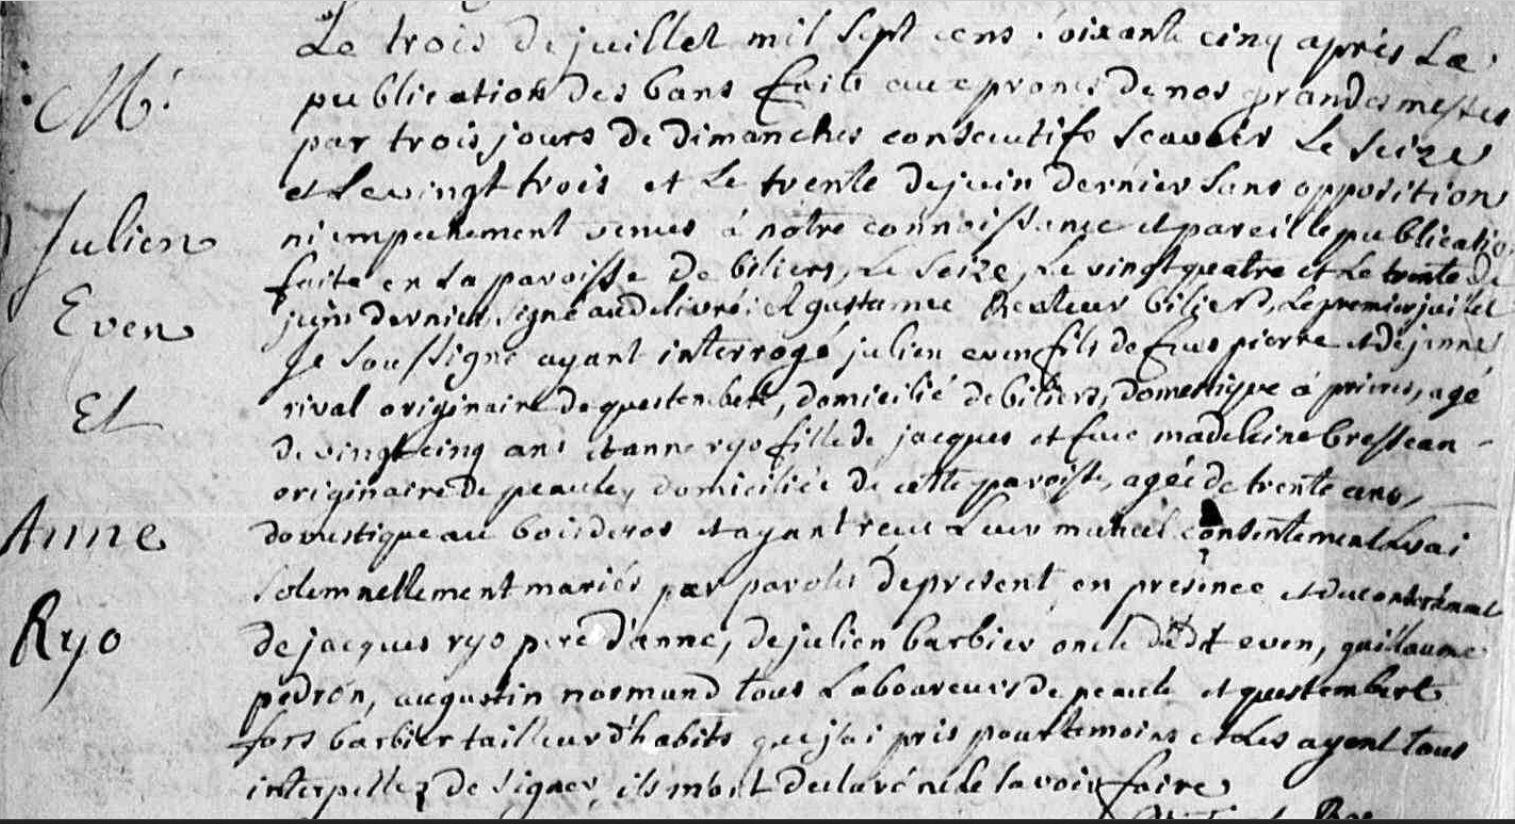 Mr
Julien
Even
Et
Anne
Ryo
Le trois de juillet mil sept cens soixante cinq après La
publication des bans faite aux prones de nos grandes messes
par trois jours de dimanches consecutifs scavoir Le seize
et Le vingt trois et Le trente de juin dernier sans opposition
ni empechement venus à notre connoissance et pareille publication
faite en La paroisse de biliers, Le seize, Le vingt quatre et Le trente de
juin dernier, signé au delivré Recteur biliers, Le premier juillet
Je soussigné ayant interrogé julien even fils de feus pierre et de jenne
rival originaire de questembert, domicilié de biliers, domestique à prieres, agé
de vingt cinq ans et anne ryo fille de jacques et feue madeleine bressean
originaire de peaule, domiciliée de cette paroisse, agée de trente ans,
domestique au bois de ros et ayant receu Leur mutuel consentement Les ai
solemnellement mariés par paroles de present en presence et du consentement
de jacques ryo pere d'anne, de julien barbier oncle dudt even, guillaume
pedron, augustin normand tous Laboureurs de peaule et questembert
fors barbier tailleur d'habits que j'ai pris pour temoins et Les ayant tous
interpellez de signer, ils m'ont declaré ne le savoir faire